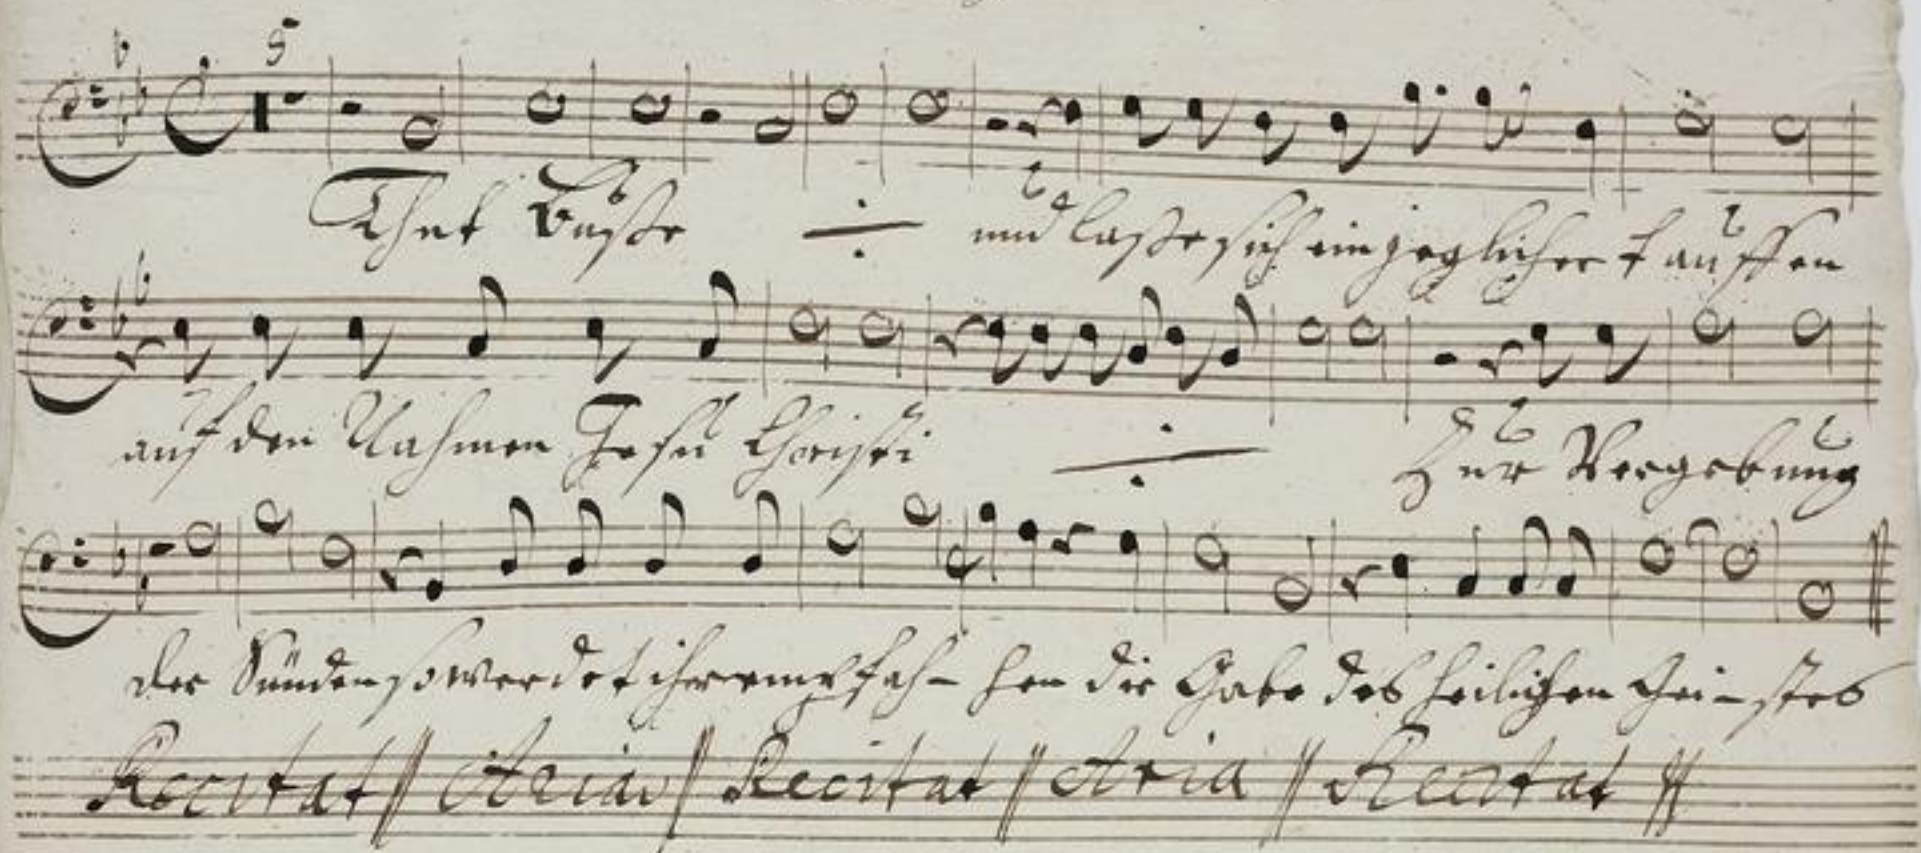 5
Thut Buße ·/· und laße sich ein jeglicher tauffen
auf den Nahmen Jesu Christi ·/· Zur Vergebung
der Sünden so werdet ihr empfah- hen die Gabe des heiligen Gei-stes
Recitat // Aria // Recitat // Aria // Recitat //